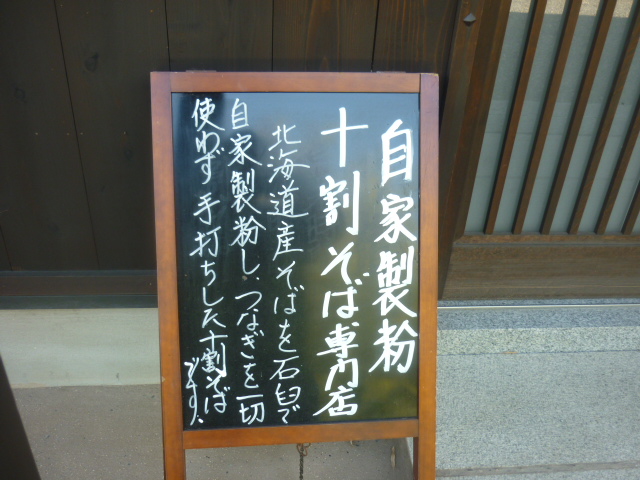 自家製粉
十割そば専門店
北海道産そばを石臼で
自家製粉し、つなぎを一切
使わず手打ちした十割そば
です。